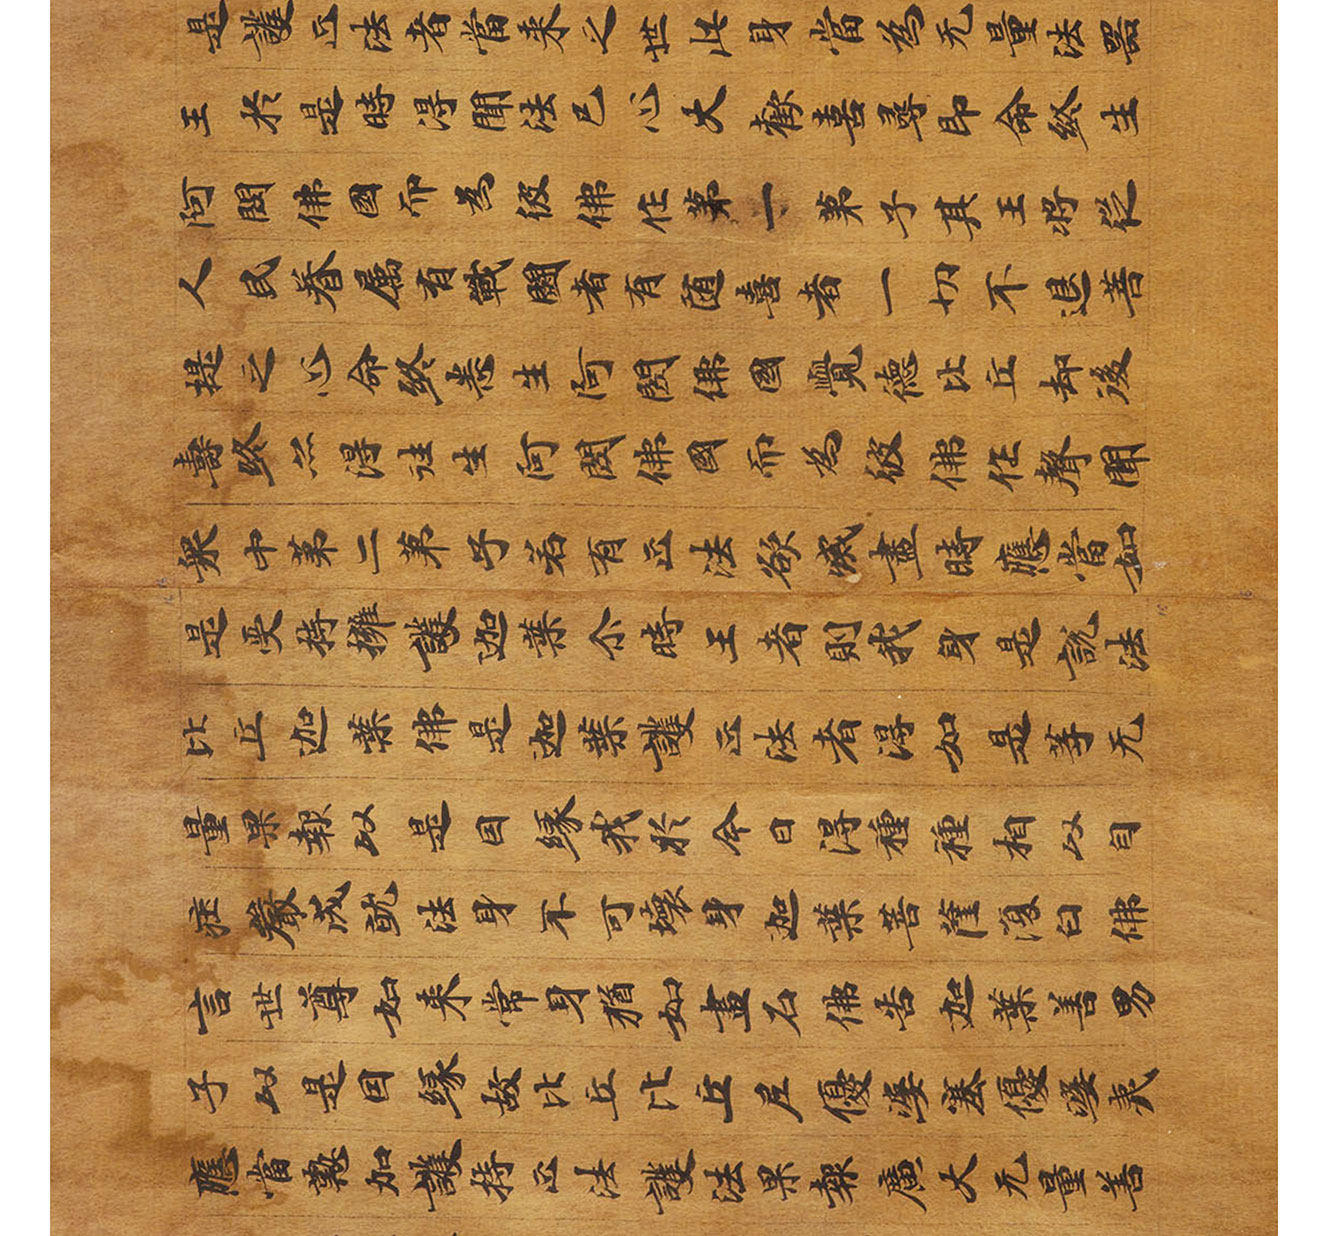 是護正法者當来之世此身當為无量法器
王於是時得聞法已心大歡喜尋即命終生
阿閦佛國而為彼佛作第一第子其王將從
人民眷属有戰鬪者有随喜者一切不退菩
提之心命終悉生阿閦佛國覺德比丘却後
壽終亦得往生阿閦佛國而為彼佛作聲聞
衆中第二第子若有正法欲滅盡時應當如
是受持擁護迦葉尒時王者則我身是說法
比丘迦葉佛是迦葉護正法者得如是等无
量果報以是因緣我於今日得種種相以自
莊嚴成就法身不可壞身迦葉菩薩復白佛
言世尊如来常身猶如畫石佛告迦葉善男
子以是因緣故比丘比丘尼優婆塞優婆夷
應當懃加護持正法護法果報廣大无量善